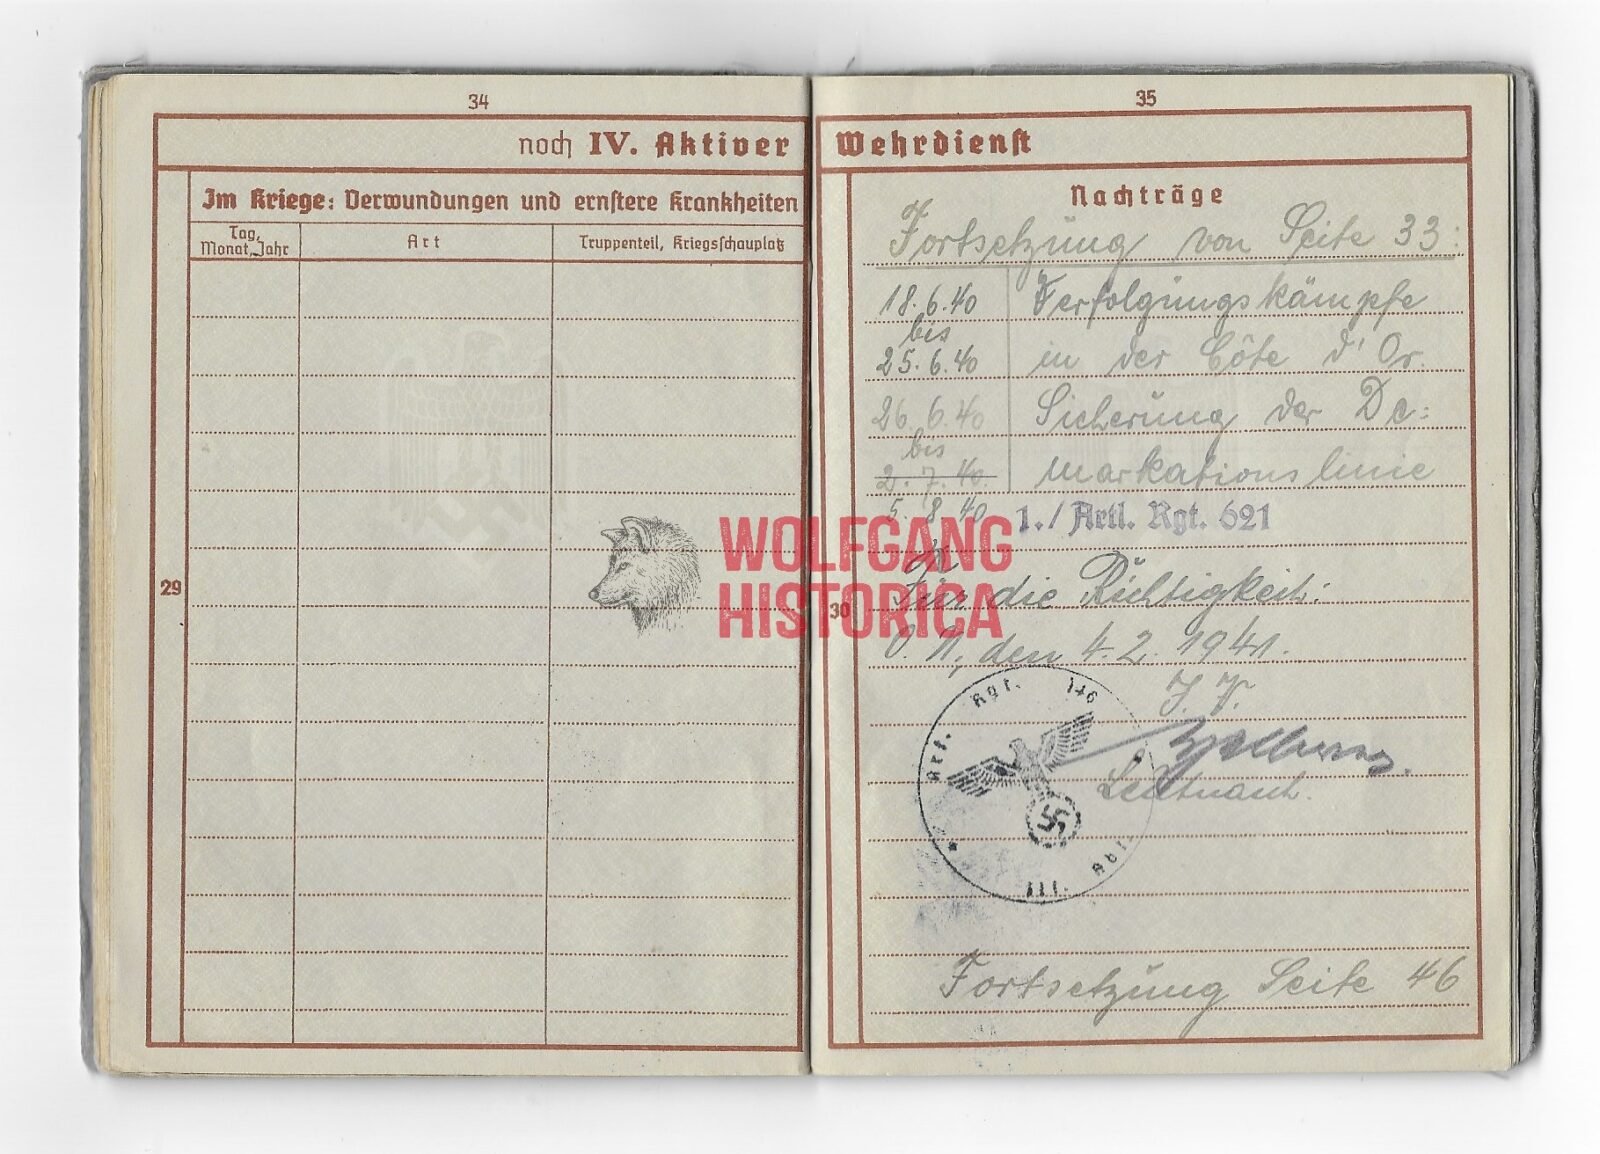 34
noch IV. Aktiver
Im Kriege: Verwundungen und ernstere Krankheiten
Tag, Monat, Jahr
Art
Truppenteil, Kriegsschauplatz
29
35
Wehrdienst
Nachträge
Fortsetzung von Seite 33:
18.6.40 Verfolgungskämpfe
bis
25.6.40 in der Côte d'Or.
26.6.40 Sicherung der De=
bis
2.7.40. markationslinie
5.8.40 1./Artl. Rgt. 621
WOLFGANG
HISTORICA
30
Für die Richtigkeit:
O.U., den 4.2.1941.
I.V.
Leutnant.
Art. Rgt. 146
III. Abt.
Fortsetzung Seite 46